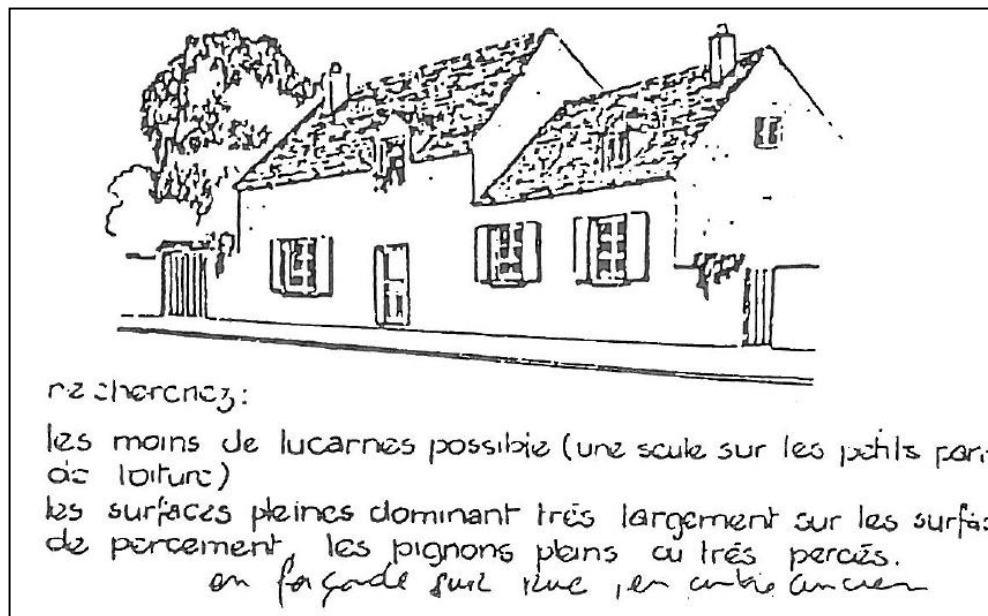 recherchez:
les moins de lucarnes possible (une seule sur les petits pan
de toiture)
les surfaces pleines dominant très largement sur les surfac
de percement, les pignons pleins ou très percés.
en façade sur rue, en centre ancien